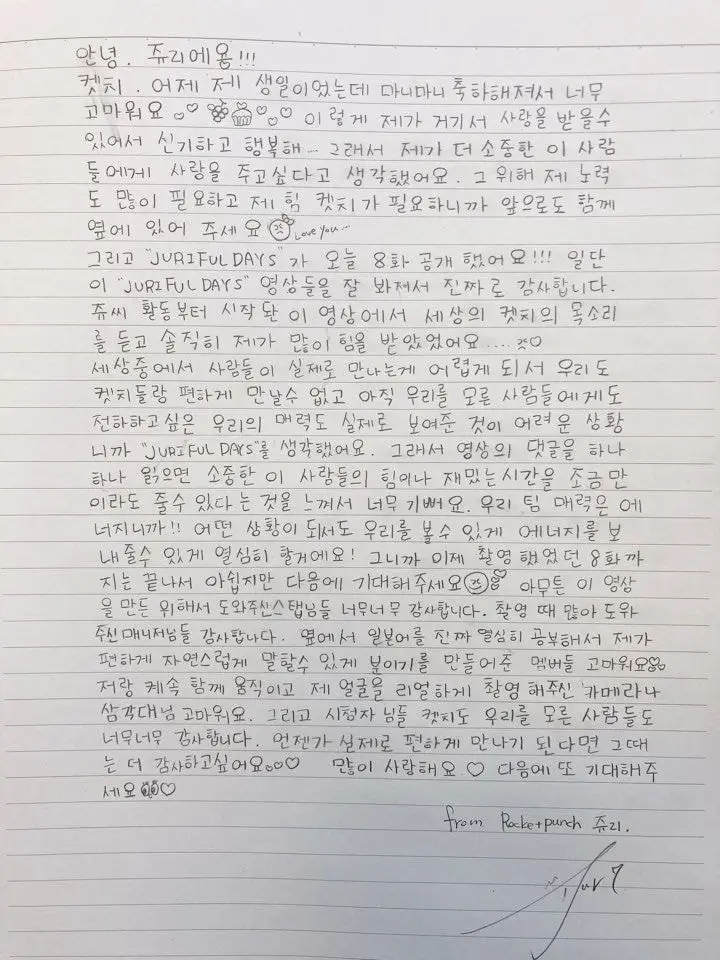 안녕. 쥬리에용!!!
켓치. 어제 제 생일이었는데 마니마니 축하해져서 너무
고마워요 이렇게 제가 거기서 사랑을 받을수
있어서 신기하고 행복해... 그래서 제가 더 소중한 이 사람
들에게 사랑을 주고싶다고 생각했어요. 그 위해 제 노력
도 많이 필요하고 제 힘 켓치가 필요하니까 앞으로도 함께
옆에 있어 주세요 Love you...
그리고 "JURIFUL DAYS"가 오늘 8화 공개 했어요!!! 일단
이 "JURIFUL DAYS" 영상들을 잘 봐져서 진짜로 감사합니다.
쥬씨 활동부터 시작 돤 이 영상에서 세상의 켓치의 목소리
를 듣고 솔직히 제가 많이 힘을 받았었어요....
세상중에서 사람들이 실제로 만나는게 어렵게 되서 우리도
켓치들랑 편하게 만날수 없고 아직 우리를 모른 사람들에게도
전하하고싶은 우리의 매력도 실제로 보여준 것이 어려운 상황
니까 "JURIFUL DAYS"를 생각했어요. 그래서 영상의 댓글을 하나
하나 읽으면 소중한 이 사람들의 힘이나 재밌는시간을 조금만
이라도 줄수 있다는 것을 느껴서 너무 기뻐요. 우리 팀 매력은 에
너지니까!! 어떤 상황이 되서도 우리를 볼수 있게 에너지를 보
내줄수 있게 열심히 할거에요! 그니까 이제 촬영했었던 8화까
지는 끝나서 아쉽지만 다음에 기대해주세요 아무튼 이 영상
을 만든 위해서 도와주신스탭님들 너무너무 감사합니다. 촬영 때 많아 도와
주신매니저님들 감사합니다. 옆에서 일본어를 진짜 열심히 공부해서 제가
편하게 자연스럽게 말할수 있게 분이기를 만들어준 멤버들 고마워요
저랑 케속 함께 움직이고 제 얼굴을 리얼하게 촬영해주신 카메라나
삼각대님 고마워요. 그리고 시청자님들 켓치도 우리를 모른 사람들도
너무너무 감사합니다. 언젠가 실제로 편하게 만나기 된다면 그때
는 더 감사하고싶어요 많이 사랑해요 ♡ 다음에 또 기대해주
세요 ♡
from Rocketpunch 쥬리.
Juri